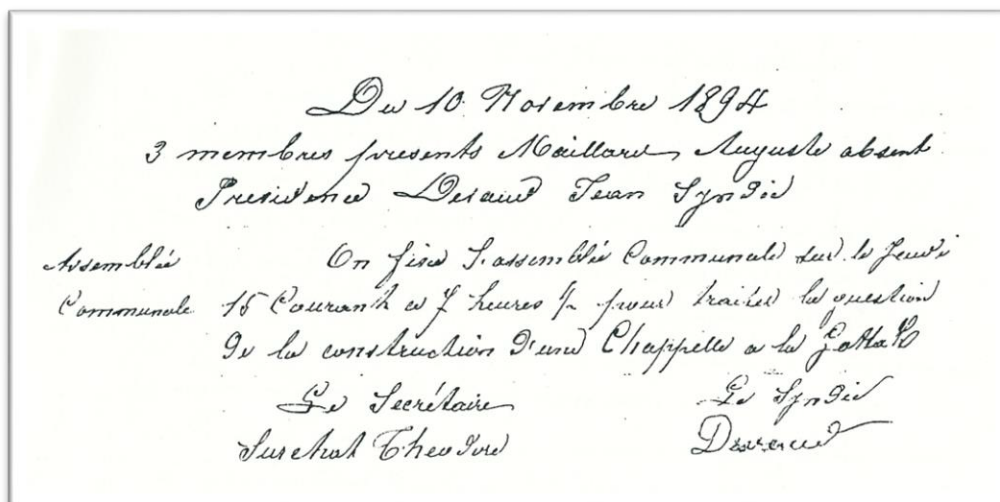 Du 10 Novembre 1894
3 membres presents Maillard Auguste absent
Presidence Devaud Jean Syndic
Assemblée
Communale
On fixe l'assemblée Communale sur le Jeudi
15 Courant a 7 heures ½ pour traiter la question
de la construction d'une Chappelle a la
Le Secrétaire
Le Syndic
Surchat Theodore
Devaud